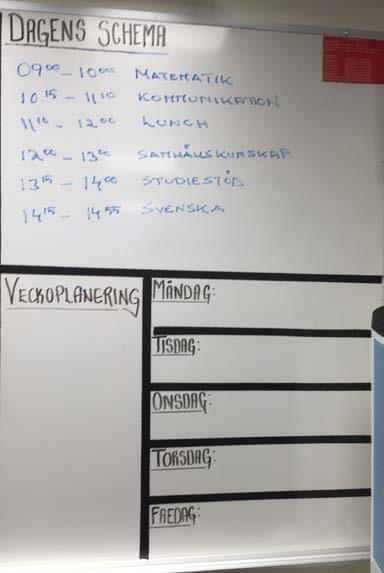 DAGENS SCHEMA
0900 - 1000 MATEMATIK
1015 - 1110 KOMMUNIKATION
1110 - 1200 LUNCH
1200 - 1300 SAMHÄLLSKUNSKAP
1315 - 1400 STUDIESTÖD
1415 - 1455 SVENSKA
VECKOPLANERING
MÅNDAG:
TISDAG:
ONSDAG:
TORSDAG:
FREDAG: